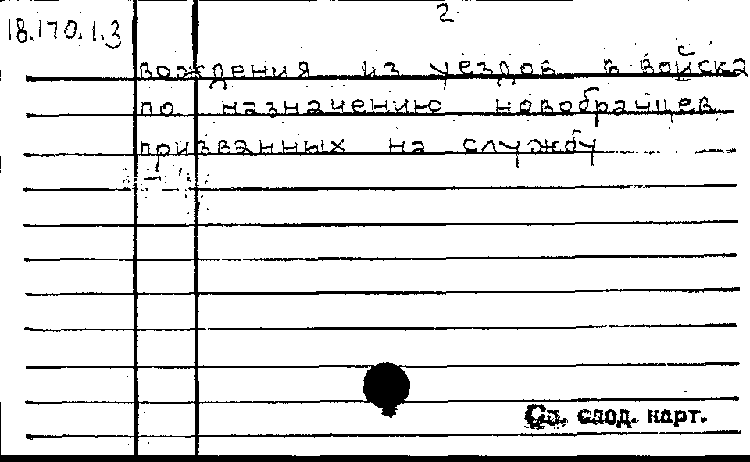 18.170.1.3
2
вождения из уездов в войска
по назначению новобранцев,
призванных на службу
См. след. карт.